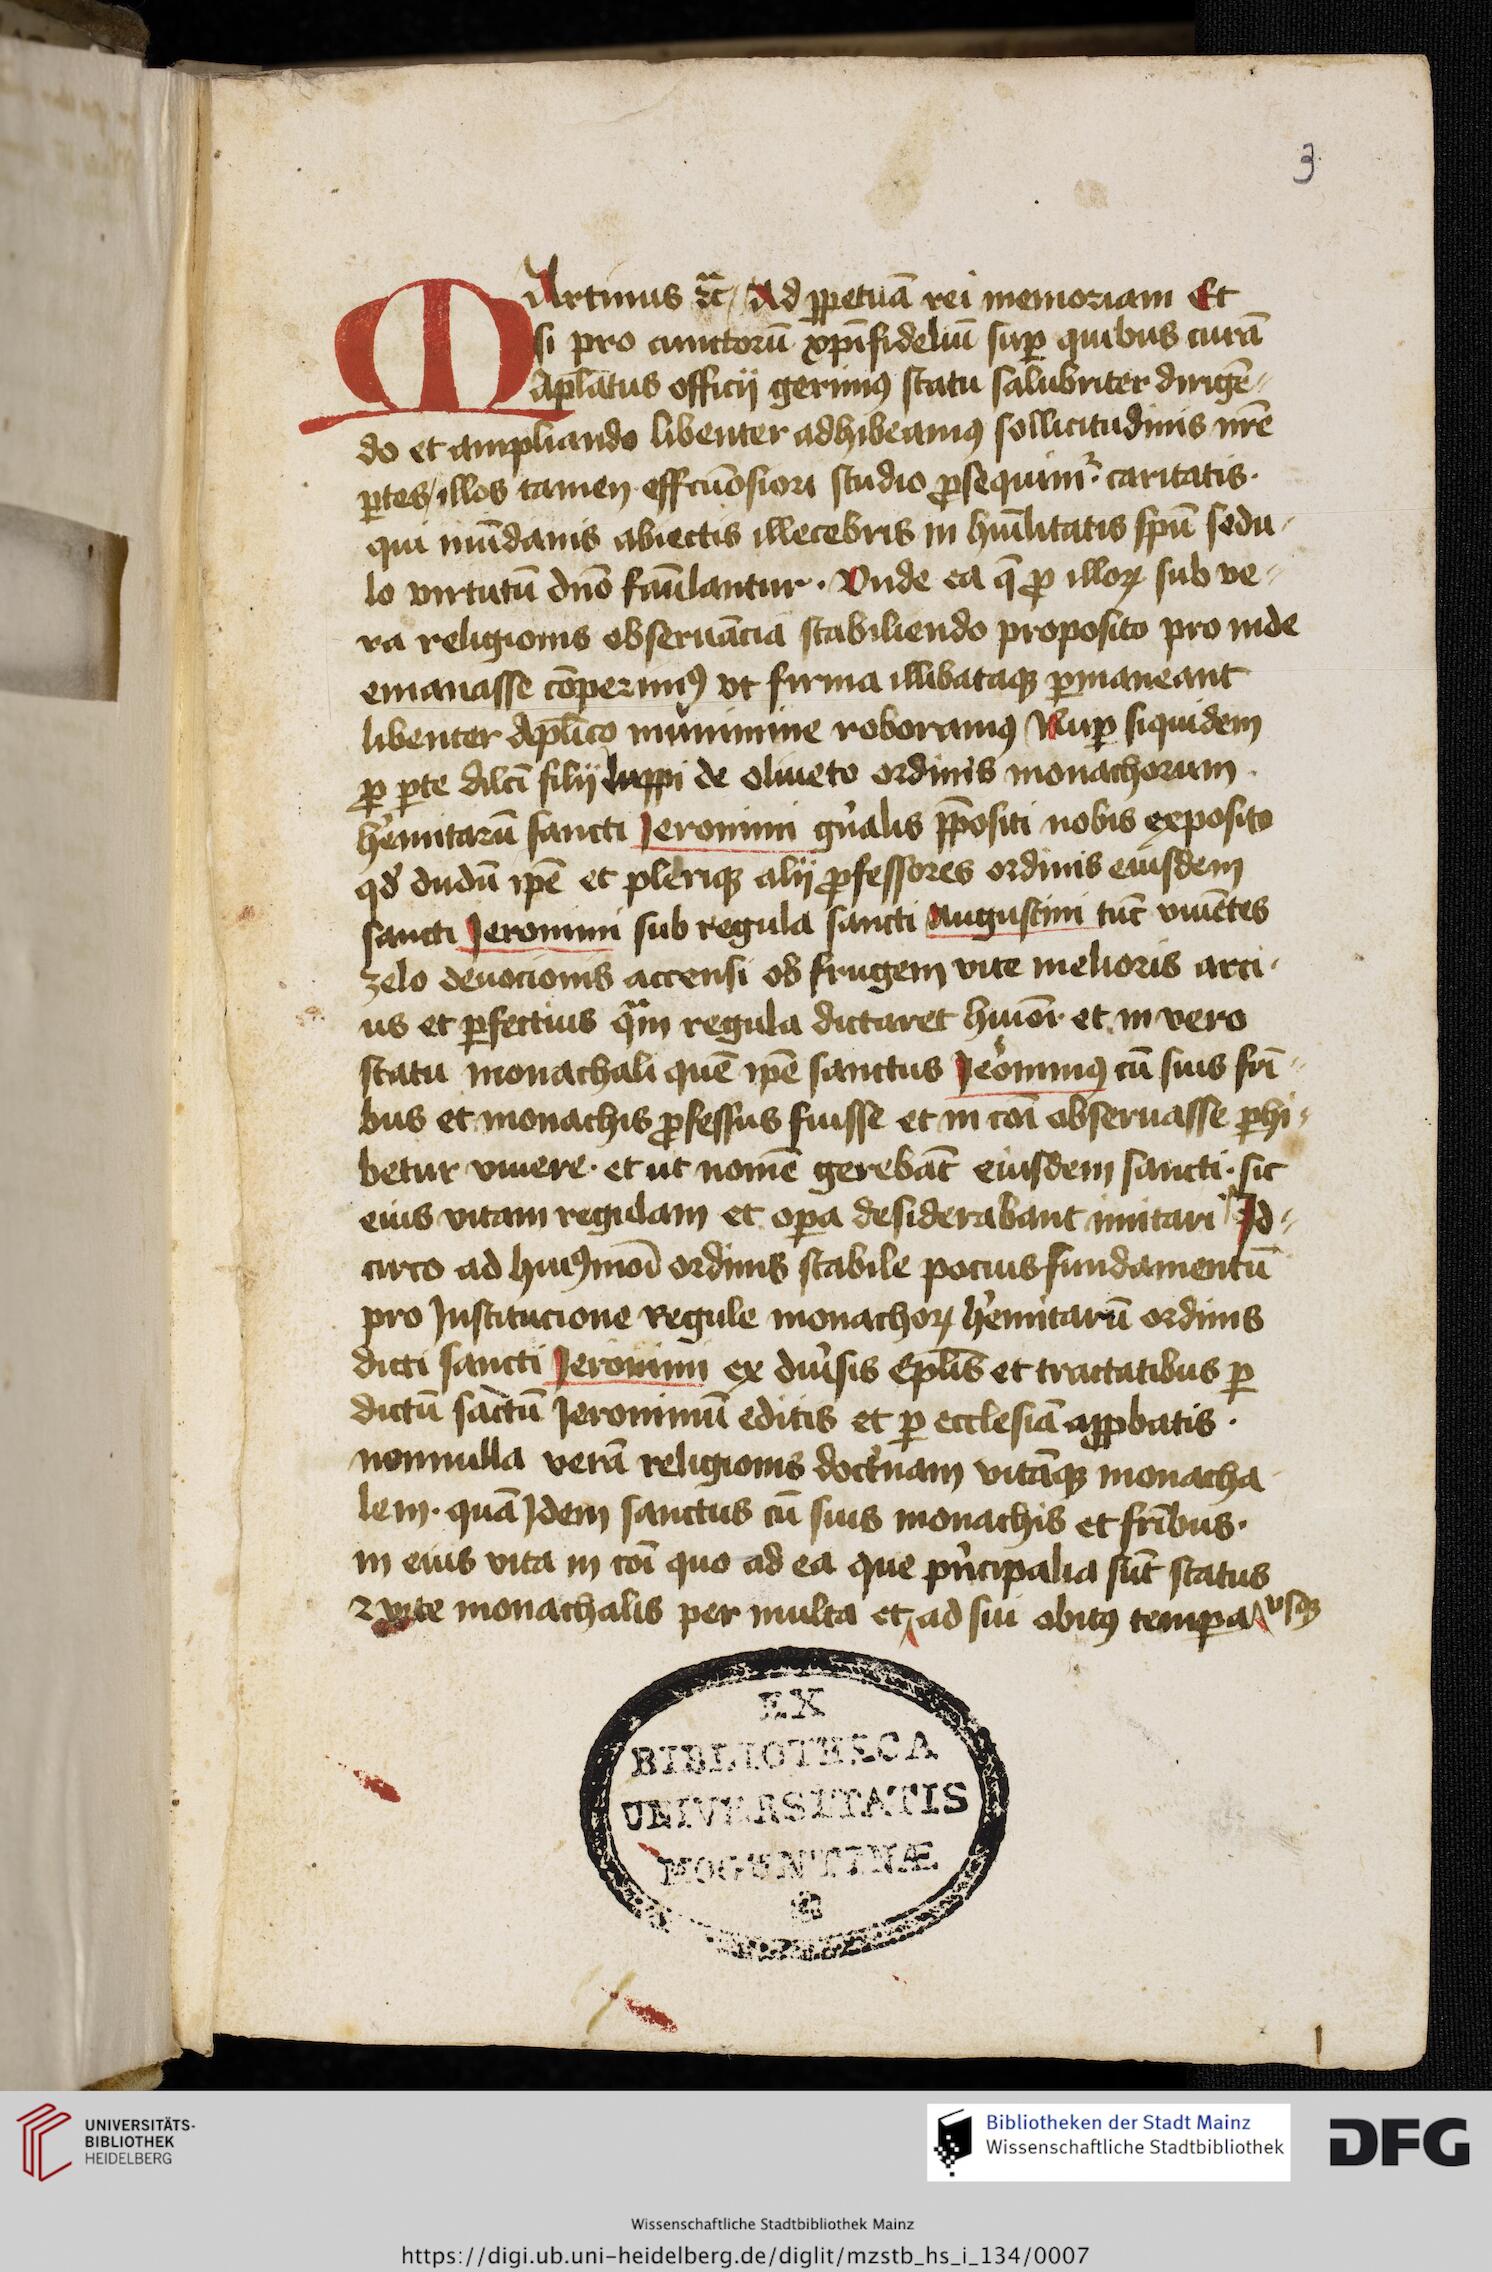 3
MArtinus ⁊c̃ / Ad ꝑpetuā rei memoriam Et
si pro cunctorū xp̄ifideliū suꝑ quibus curā
Ap̄latus officij gerimꝯ statu salubriter dirigē-
do et ampliando libenter adhibeamꝯ sollicitudinis nr̄e
ꝑtes / illos tamen effcūosiori studio ꝓsequimr̄ · caritatis ·
qui mūdanis abiectis illecebris in hūilitatis spū sedu-
lo virtutū dn̄o faūlantur · Vnde ea q̄ ꝓ illoꝝ sub ve-
ra religionis obseruācia stabiliendo proposito pro inde
emanasse cōperimꝯ vt firma illibataqꝫ ꝑmaneant
libenter Ap̄lico munimine roboramꝯ Nuꝑ siquidem
ꝓ ꝑte dilc̄i filij luppi de oliueto ordinis monachorum
h'emitarū sancti Jeronimi gn̄alis p̄positi nobis exposito
qd' dudū ip̄e et pleriqꝫ alij ꝓfessores ordinis eiusdem
sancti Jeronimi sub regula sancti Augustini tūc viuētes
zelo deuocionis accensi ob frugem vite melioris arci-
us et ꝑfectius qͣm regula dictaret hmōi et in vero
statu monachali quē ip̄e sanctus Jeronimꝯ cū suis fr̄i-
bus et monachis ꝓfessus fuisse et in cōi obseruasse ꝑhi-
betur viuere · et ut nomē gerebāt eiusdem sancti · sic
eius vitam regulam et oꝑa desiderabant imitari Id-
circo ad huiꝯmōi ordinis stabile pocius fundamentū
pro Institucione Regule monachoꝝ h'emitarū ordinis
dicti sancti Jeronimi ex diu'sis Ep̄lis et tractatibus ꝑ
dictū sāctū Jeronimū editis et ꝑ ecclesiā apꝓbatis ·
nonnulla verā religionis doct'nam vitāqꝫ monacha
lem · quā Idem sanctus cū suis monachis et fr̄ibus ·
in eius vita in cōi quo ad ea que pn̄cipalia sūt status
⁊ vite monachalis per multa et ad sui obitꝯ tempora vsqꝫ
EX
BIBLIOTHECA
UNIVERSITATIS
MOGUNTINÆ
1
UNIVERSITÄTS-
BIBLIOTHEK
HEIDELBERG
Bibliotheken der Stadt Mainz
Wissenschaftliche Stadtbibliothek
DFG
Wissenschaftliche Stadtbibliothek Mainz
https://digi.ub.uni-heidelberg.de/diglit/mzstb_hs_i_134/0007